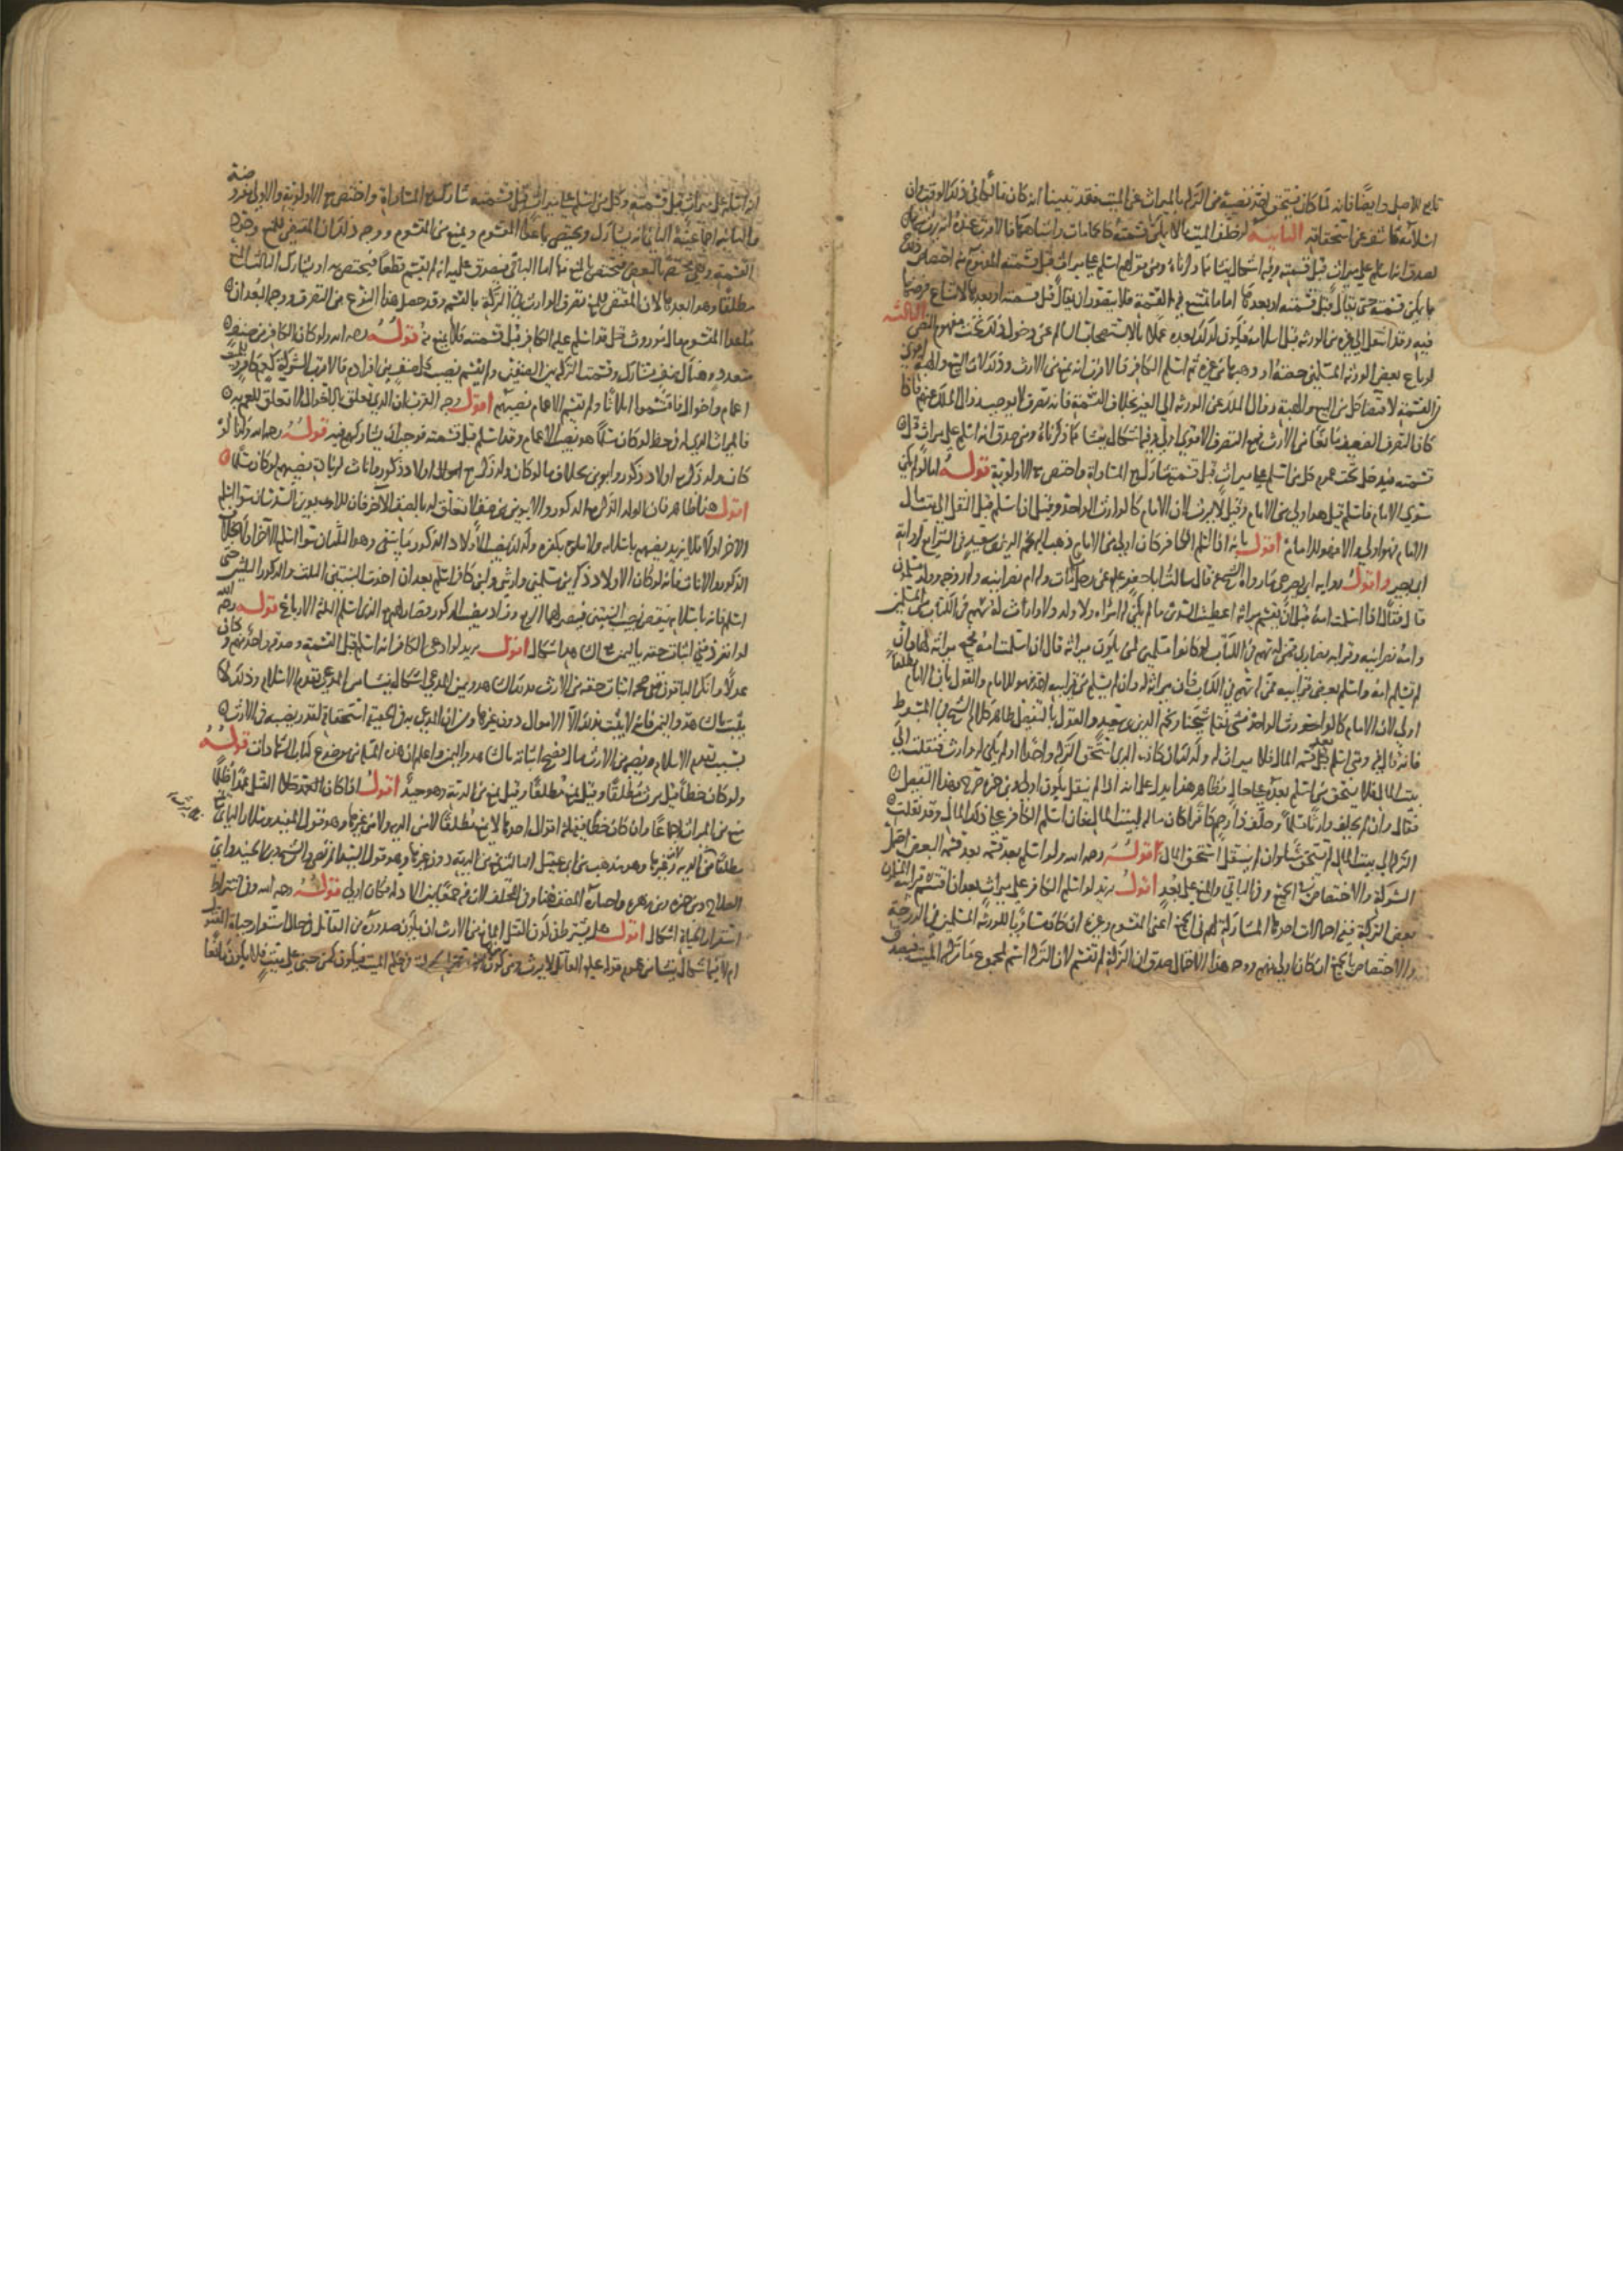 تابع للاصل وايضا فانه لما كان يستحق نصيبه من التركة بالميراث عن الميت فقد تبينا انه كان مالكا في ذلك الوقت وان
اسلامه كاشف عن استحقاقه الثانية لو خلف الميت ما لا يمكن قسمته
يصدق انه اسلم على ميراث قبل قسمته وفيه اشكال ينشا مما ذكرناه ومن قولهم اسلم على ميراث قبل قسمته
ما يمكن قسمته حتى يقال قبل قسمته او بعدها اما ما تمتنع فيه القسمة فلا يتصور ان يقال قبل قسمته او بعدها لامتناع فرضها
فيه وقد انتقل الى غيره من الورثة قبل اسلامه فيكون لذلك بعده عملا بالاستصحاب السالم عن دخول ذلك تحت مفهوم النص الثالثة
لو باع بعض الورثة المسلمين حصته او وهبها من غيره ثم اسلم الكافر فالاقرب انه يمنع من الارث وذلك لان البيع والهبة اقوى
من القسمة لاقتضاء كل من البيع والهبة زوال الملك عن الورثة الى الغير بخلاف القسمة فانه تصرف لا يوجب زوال الملك عنهم فاذا
كان التصرف الضعيف مانعا من الارث فهو التصرف الاقوى اولى وفيه اشكال ينشا مما ذكرناه ومن صدق انه اسلم على ميراث قبل
قسمته فيدخل تحت عموم كل من اسلم على ميراث قبل قسمته شارك مع المساواة واختص مع الاولوية قوله اما لو لم يكن
سوى الامام فاسلم قيل هو اولى من الامام وقيل لا يرث لان الامام كالوارث الواحد وقيل ان اسلم قبل النقل الى بيت مال
الامام فهو اولى والا فهو للامام اقول بانه اذا اسلم الكافر كان اولى من الامام ذهب اليه نجم الدين بن سعيد في الشرايع لرواية
ابي بصير واقول رواية ابي بصير هي ما رواه الشيخ عنه قال سالت ابا جعفر عليه السلام عن رجل مات وله ام نصرانية وله زوجة وولد مسلمون
قال فقال ان اسلمت امه قبل ان يقسم ميراثه اعطيت السدس قلت فان لم يكن له امراة ولا ولد ولا وارث له سهم في الكتاب من المسلمين
وامه نصرانية وقرابته نصارى ممن له سهم في الكتاب لو كانوا مسلمين لمن يكون ميراثه قال ان اسلمت امه فجميع ميراثه لها وان
لم تسلم امه واسلم بعض قرابته ممن له سهم في الكتاب فان ميراثه له وان لم يسلم من قرابته احد فهو للامام والقول بان الامام مطلقا
اولى لان الامام كالوارث الواحد شيخنا نجم الدين بن سعيد والقول بالتفصيل ظاهر كلام الشيخ في المبسوط
فانه قال فيه ومتى اسلم بعد قسمة المال فلا ميراث له وكذلك ان كان الذي استحق التركة واحدا او لم يكن له وارث فنقلت الى
بيت المال فلا يستحق من اسلم بعده على حال فظاهر هذا يدل على انه اذا لم ينقل يكون اولى وابن حمزة صرح بهذا التفصيل
فقال وان لم يخلف وارثا مسلما وخلف ذا رحم كافرا كان ماله لبيت المال فان اسلم الكافر على ذلك المال وقد نقلت
التركة الى بيت المال لم يستحق شيئا وان لم ينقل استحق المال قوله رحمه الله ولو اسلم بعد قسمة البعض احتمل
الشركة والاختصاص في الجميع وفي الباقي والمنع على بعد اقول يريد لو اسلم الكافر على ميراث بعد ان اقتسم قرابته المسلمون
بعض التركة ففيه احتمالات احدها المشاركة لهم في الجميع اعني المقسوم وغيره ان كان مساويا للورثة المسلمين في الدرجة
والاختصاص بالجميع ان كان اولى منهم ووجه هذا الاحتمال صدق ان التركة لم تقسم لان التركة اسم لمجموع ما تركه الميت فيصدق
انه اسلم على ميراث قبل قسمته وكل من اسلم على ميراث قبل قسمته شارك مع المساواة واختص مع الاولوية والاولى ضرورية
والثانية اجماعية الثاني انه يشارك ويختص بما عدا المقسوم ويمنع من المقسوم ووجه ذلك ان المقتضي للمنع وجود
القسمة وهي مختصة بالبعض فيختص بالمنع فيه اما الباقي فيصدق عليه انه لم يقسم قطعا فيختص به او يشارك الثالث المنع
مطلقا وهو ابعدها لان المقتضي للمنع تصرف الوارث في التركة بالقسمة وقد حصل هذا النوع من التصرف ووجه البعد ان
ما عدا المقسوم مال موروث قد اسلم عليه الكافر قبل قسمته فلا يمنع منه قوله رحمه الله ولو كان الكافر من صنف
متعدد وهناك صنف مشارك وقسمت التركة بين الصنفين ولم يقسم نصيب كل صنف بين افراده فالاقرب الشركة كعم كافر مع
اعمام واخوال فاقتسموا اثلاثا ولم تقسم الاعمام نصيبهم اقول وجه القرب ان الذي تعلق بالاخوال لا تعلق للعم به
فالميراث الذي له فيه حظ لو كان مسلما هو نصيب الاعمام وقد اسلم قبل قسمته فوجب ان يشاركهم فيه قوله رحمه الله وكذا لو
كان ولد ذكر مع اولاد ذكور وابوين بخلاف ما لو كان ولد ذكر مع اولاد ذكور واناث
اقول هذا ظاهر فان الولد الذكر مع الذكور والابوين من صنف لا تعلق له بالصنف الآخر فان للابوين السدسان سواء اسلم
الآخر او لا فلا يزيد نصيبهم باسلامه ولا ينقص بكفره وكذلك نصيب الاولاد الذكور ما يبقى وهو الثلثان سواء اسلم الآخر او لا بخلاف
الذكور والاناث فانه لو كان الاولاد ذكرين مسلمين وابن كافر اسلم بعد ان اخذت البنتين الثلث والذكور الثلثين حتى
اسلم فانه باسلامه ينقص نصيب البنتين فيصير لهما الربع وزاد نصيب الذكور فصار لهم مع الذي اسلم الثلثة الارباع قوله رحمه الله
لو انفرد ففي اثبات حقه باليمين اشكال اقول يريد لو ادعى الكافر انه اسلم قبل القسمة وصدقه احدهم وكان
عدلا وانكر الباقون فهل له اثبات حقه من الارث بشاهد ويمين المدعي اشكال ينشا من ان المدعى تقدم الاسلام وذلك لا
يثبت بالشاهد واليمين فانه لا يثبت بذلك الا الاموال دون غيرها ومن ان المدعى به في الحقيقة استحقاقه لقدر نصيبه في الارث
بسبب تقدم الاسلام ونصيبه من الارث مال فيصح اثباته بالشاهد واليمين واعلم ان هذه المسئلة موضوع كتاب الشهادات قوله
ولو كان خطأ قيل يرث مطلقا وقيل يمنع مطلقا وقيل يمنع من الدية وهو جيد اقول اذا كان القتل عمدا ظلما
منع من الميراث اجماعا وان كان خطأ ففيه ثلاثة اقوال احدها لا يمنع مطلقا لا من الدية ولا من غيرها وهو قول المفيد وسلار الثاني يمنع
مطلقا من الدية وغيرها وهو مذهب ابن ابي عقيل الثالث يمنع من الدية دون غيرها وهو قول السيد المرتضى والشيخ وابن الجنيد وابي
الصلاح وابن حمزة وابن زهرة واختاره المصنف هنا وفي المختلف لان فيه جمعا بين الادلة فكان اولى قوله رحمه الله وفي اشتراط
استقرار الحياة اشكال اقول هل يشترط في كون القتل المانع من الارث ان يكون صدوره من القاتل في حال استقرار حياة المقتول
ام لا فيه اشكال ينشا من عموم قوله عليه السلام القاتل لا يرث ومن كون في حكم الميت فيكون كمن جنى على ميت فلا يكون مانعا